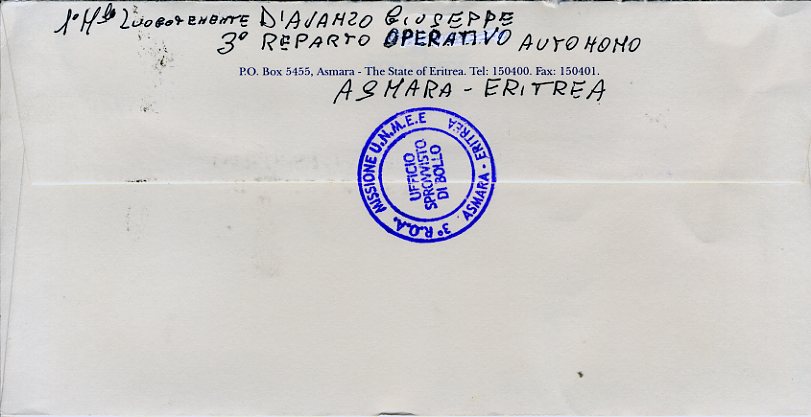 1° M.llo LUOGOTENENTE D'AVANZO GIUSEPPE
3° REPARTO OPERATIVO AUTONOMO
P.O. Box 5455, Asmara - The State of Eritrea. Tel: 150400. Fax: 150401.
ASMARA - ERITREA
3° R.O.A. MISSIONE U.N.M.E.E ERITREA
ASMARA - ERITREA
UFFICIO
SPROVVISTO
DI BOLLO